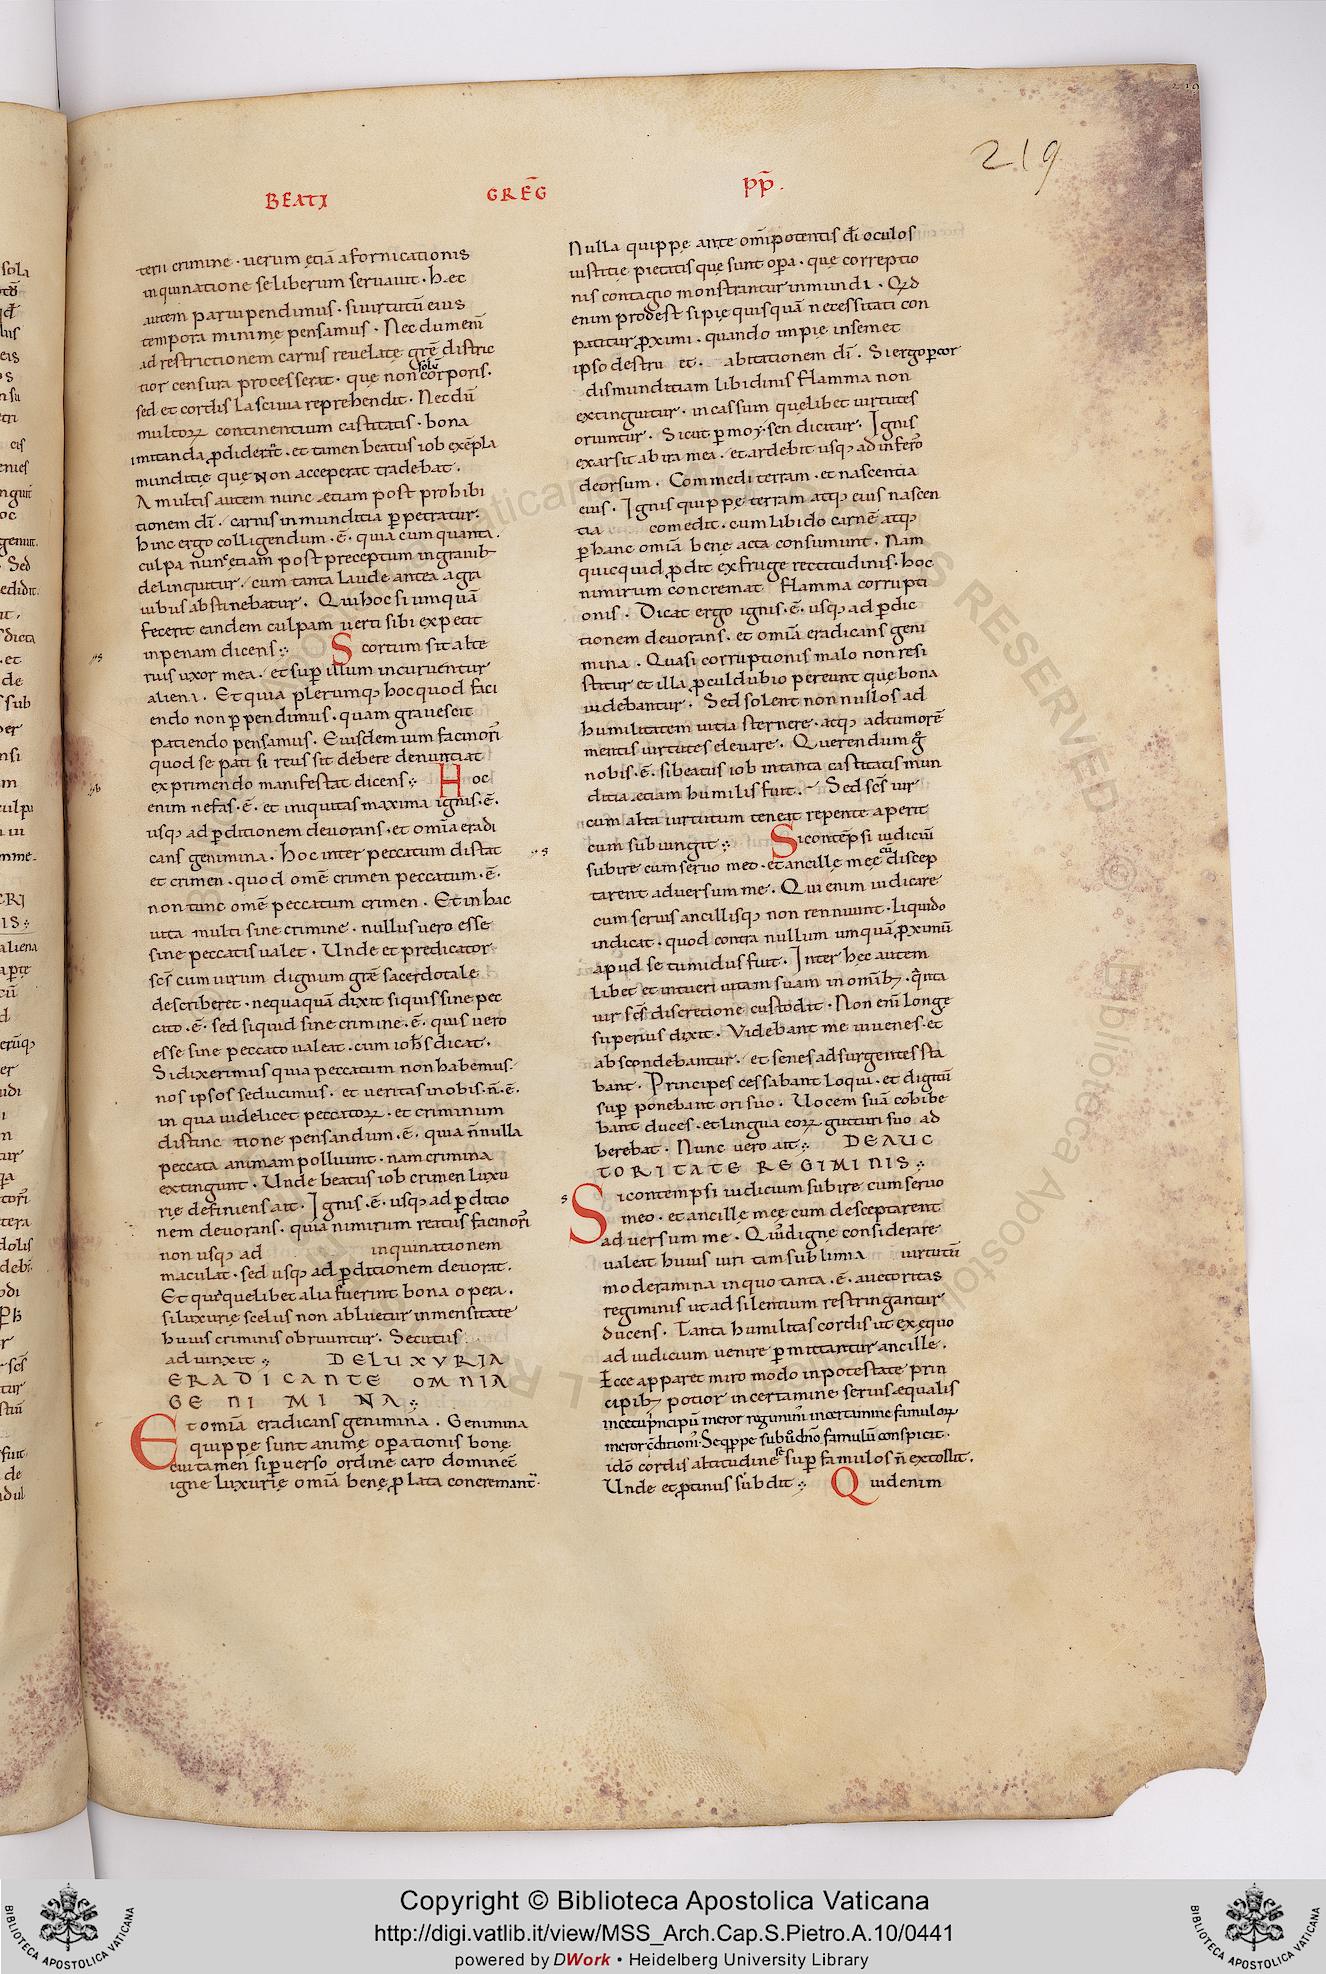 219
BEATI GREG̅ PP̅.
terii crimine · uerum ęciā a fornicationis
inquinatione se liberum seruauit · hec
autem paruipendimus · si uirtutū eius
tempora minime pensamus · Nec dum eni̅
ad restrictionem carnis reuelatę gr̅e distric
tior censura processerat · que non solu̅ corporis ·
sed et cordis lasciuia reprehendit · Nec du̅
multoꝝ continentium castitatis · bona
imitanda ꝓdiderit · et tamen beatus iob exe̅pla
munditie que non acceperat tradebat .
A multis autem nunc etiam post prohibi
tionem di̅ · carnis inmunditia ꝑpetratur ·
hinc ergo colligendum · ē · quia cum quanta
culpa nunc etiam post preceptum in grauib;
delinquitur · cum tanta laude antea a gra
uibus abstinebatur . Qui hoc si umquā
fecerit eandem culpam uerti sibi expetit
in penam dicens Scortum sit alte
rius uxor mea · et suꝑ illum incuruentur
aliena . Et quia plerumqꝫ hoc quod faci
endo non ꝑpendimus · quam graue sit
patiendo pensamus . Eiusdem uim facinori̅
quod se pati si reus sit debere denuntiat
exprimendo manifestat dicens Hoc
enim nefas · ē · et iniquitas maxima ignis · ē ·
usqꝫ ad ꝑditionem deuorans · et omīa eradi
cans genimina . hoc inter peccatum distat
et crimen · quod omē crimen peccatum · ē ·
non tunc omē peccatum crimen . Et in hac
uita multi sine crimine · nullus uero esse
sine peccatis ualet . Unde et predicator
sc̅s cum uirum dignum gr̅e sacerdotale
describeret · nequaquā dixit si quis sine pec
cato · ē · sed si quid sine crimine · ē · quis uero
esse sine peccato ualeat · cum ioh̅s dicat .
Si dixerimus quia peccatum non habemus ·
nos ipsos seducimus · et ueritas in nobis · n̄ · ē ·
in qua uidelicet peccatoꝝ · et criminum
distinctione pensandum · ē · quia n̄ nulla
peccata animam polluunt · nam crimina
extingunt . Unde beatus iob crimen luxu
rię definiens ait . Ignis · ē · usqꝫ ad ꝑditio
nem deuorans · quia nimirum reatus facinori̅
non usqꝫ ad inquinationem
maculat · sed usqꝫ ad ꝑditionem deuorat .
Et que quelibet alia fuerint bona opera .
si luxurię scelus non abluetur inmensitate
huius criminis obruuntur . Secutus
adiunxit DE LUXVRIA
ERADICANTE OMNIA
GENIMINA
Et omīa eradicans genimina . Genimina
quippe sunt animę oꝑationis bonę
cui tamen si ꝑuerso ordine caro dominet̅
igne luxurię omīa benę ꝓlata concremant̅ .
Nulla quippe ante omīpotentis di̅ oculos
iustitie pietatisque sunt oꝑa · que correptio
nis contagio monstrantur inmundi . Q̅d
enim prodest si pie quisquā necessitati con
patitur ꝓximi · quando impie in semet
ipso destruet abitationem di̅ . Si ergo ꝑ cor
dis munditiam libidinis flamma non
extinguitur · incassum quelibet uirtutes
oriuntur . Sicut ꝑ moysen dicitur . Ignis
exarsit ab ira mea · et ardebit usqꝫ ad infero̅
deorsum . Commedi terram · et nascentia
eius . Ignis quippe terram atqꝫ eius nascen
tia comedit · cum libido carnē atqꝫ
ꝑ hanc omīa bene acta consumunt . Nam
quicquid ꝓdit ex fruge rectitudinis · hoc
nimirum concremat flamma corrupti
onis . Dicat ergo ignis · ē · usqꝫ ad ꝑdic
tionem deuorans · et omīa eradicans geni
mina . Quasi corruptionis malo non resi
stitur et illa ꝓculdubio pereunt que bona
uidebantur . Sed solent non nullos ad
humilitatem uitia sternere · atqꝫ ad tumorē
mentis uirtutes eleuare . Querendum g̊
nobis · ē · si beatus iob in tanta castitatis mun
ditia etiam humilis fuit . Sed sc̅s uir
cum alta uirtutum teneat repente aperit
cum subiungit Si conte̅psi iudiciū
subire cum seruo meo · et ancillę meę cū discep
tarent aduersum me . Qui enim iudicare
cum seruis ancillisqꝫ non rennuunt · liquido
indicat · quod contra nullum umquā ꝓximū
apud se tumidus fuit . Inter hęc autem
libet et intueri uitam suam in omīb; · qᷓnta
uir sc̅s discretione custodit . Non eni̅ longe
superius dixit . Videbant me iuuenes · et
abscondebantur · et senes adsurgentes sta
bant . Principes cessabant loqui · et digitū
suꝑ ponebant ori suo . Uocem suā cohibe
bant duces · et lingua eoꝝ gutturi suo ad
herebat . Nunc uero ait DE AUC
TORITATE REGIMINIS
Si contempsi iudicium subire cum seruo
meo · et ancillę meę cum desceptarent
aduersum me . Quis digne considerare
ualeat huius uiri tam sublimia uirtutū
moderamina in quo tanta · ē · auctoritas
regiminis ut ad silentium restringantur
ducens . Tanta humilitas cordis ut ex equo
ad iudicium uenire ꝑmittantur ancille .
Ecce apparet miro modo in potestate prin
cipib; potior in certamine seruis equalis
in cetu principū
Unde et ꝓtinus subdit Quid enim
Copyright © Biblioteca Apostolica Vaticana
http://digi.vatlib.it/view/MSS_Arch.Cap.S.Pietro.A.10/0441
powered by DWork • Heidelberg University Library